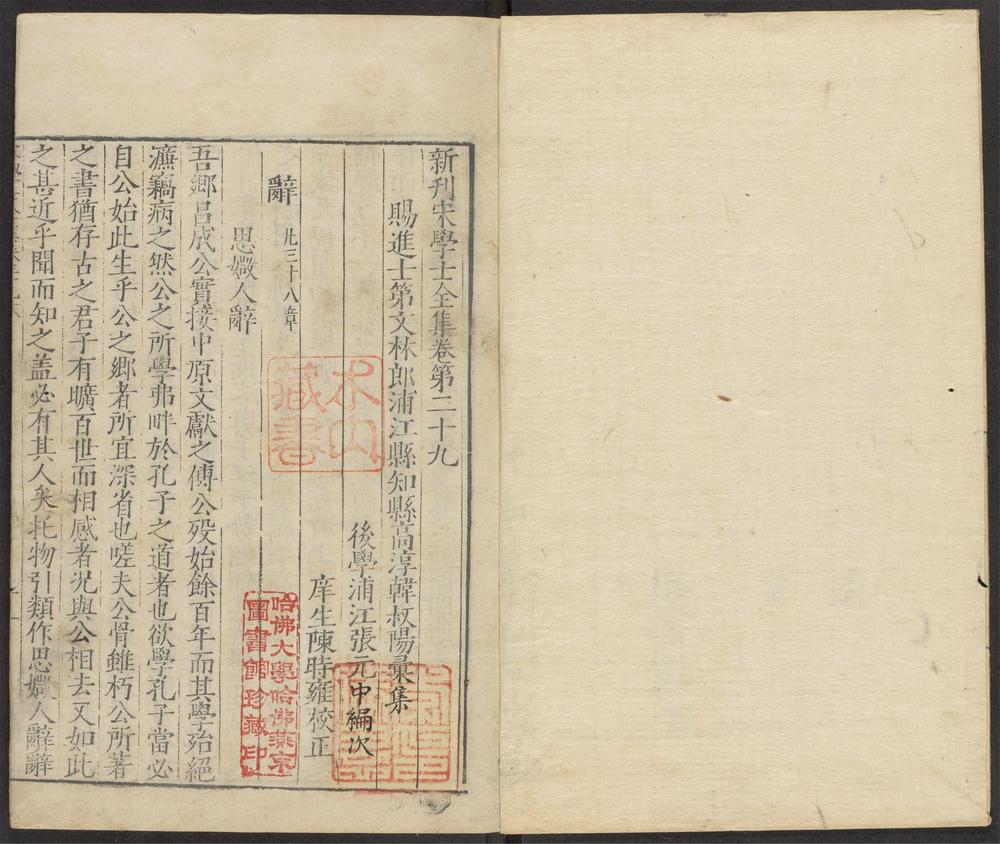 新刊宋學士全集卷第二十九
賜進士第文林郎浦江縣知縣高淳韓叔陽彙集
後學浦江張元中編次
庠生陳時雍校正
辭 凡三十八章
思媺人辭
吾鄉呂成公實接中原文獻之傳公歿始餘百年而其學殆絕
濂竊病之然公之所學弗畔於孔子之道者也欲學孔子當必
自公始此生乎公之鄉者所宜深省也嗟夫公骨雖朽公所著
之書猶存古之君子有曠百世而相感者况與公相去又如此
之甚近乎聞而知之盖必有其人矣托物引類作思媺人辭辭
木山
藏書
哈佛大學哈佛燕京
圖書館珍藏印